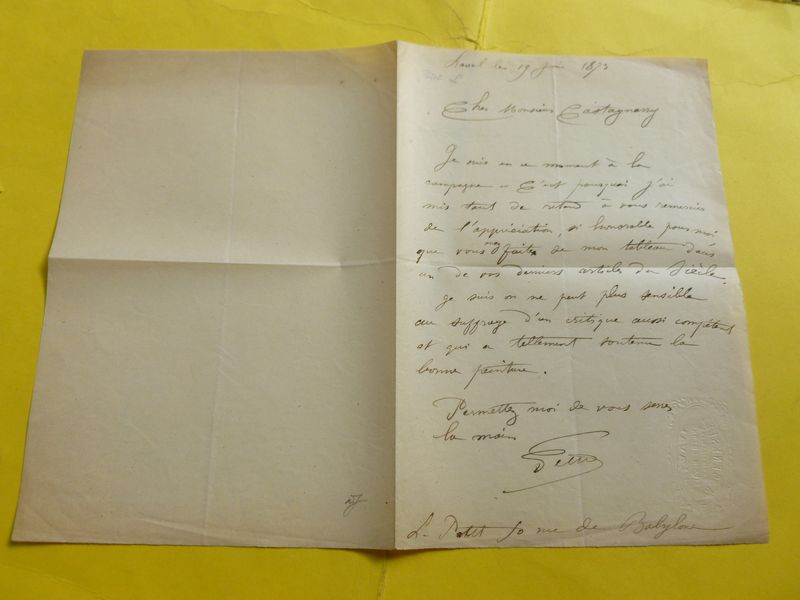 Laval les 19 Juin 1873
Cher Monsieur Castagnary
Je suis en ce moment à la
campagne – C'est pourquoi j'ai
mis tant de retard à vous remercier
de l'appréciation, si honorable pour moi
que vous avez faite de mon tableau dans
un de vos derniers articles du Siècle.
Je suis on ne peut plus sensible
au suffrage d'un critique aussi compétent
et qui a tellement soutenu la
bonne peinture.
Permettez moi de vous serrer
la main
L. Petit 50 rue de Babylone